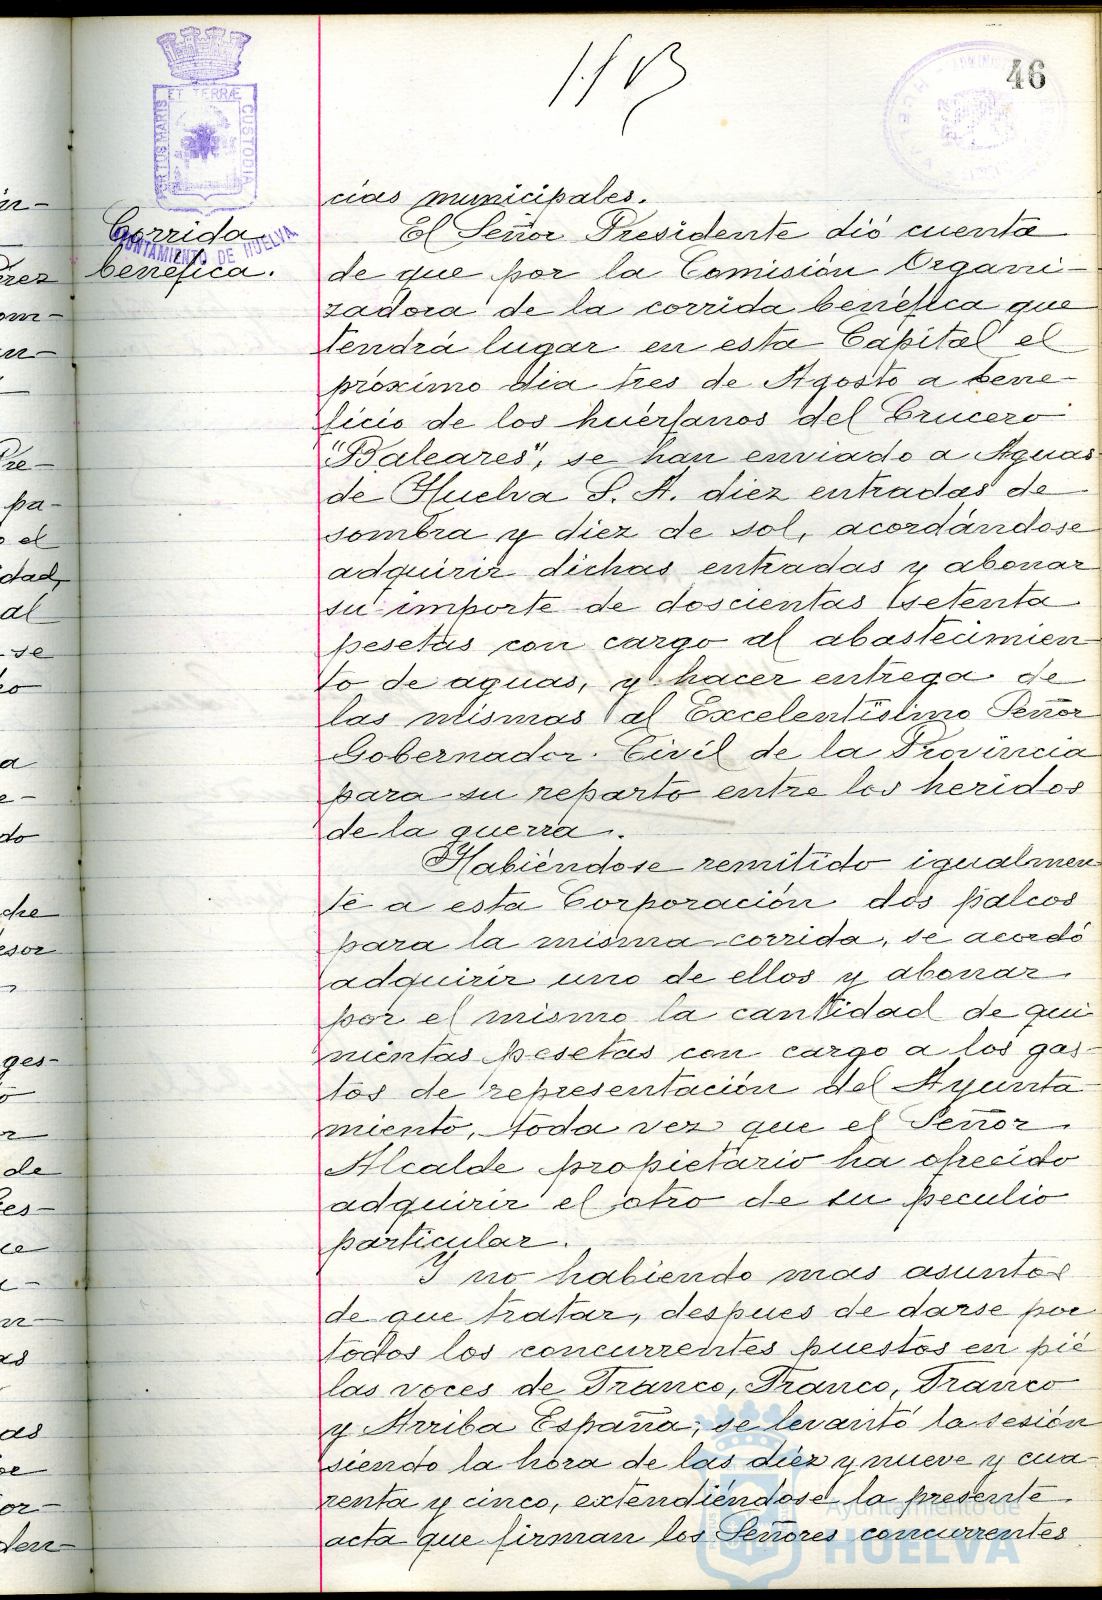 46
cias municipales.
Corrida
benéfica.
El Señor Presidente dió cuenta
de que por la Comisión Organi-
zadora de la corrida benéfica que
tendrá lugar en esta Capital el
próximo dia tres de Agosto a bene-
ficio de los huérfanos del Crucero
"Baleares", se han enviado a Aguas
de Huelva S. A. diez entradas de
sombra y diez de sol, acordándose
adquirir dichas entradas y abonar
su importe de doscientas setenta
pesetas con cargo al abastecimien
to de aguas, y hacer entrega de
las mismas al Excelentísimo Señor
Gobernador Civil de la Provincia
para su reparto entre los heridos
de la guerra.
Habiéndose remitido igualmen
te a esta Corporación dos palcos
para la misma corrida, se acordó
adquirir uno de ellos y abonar
por el mismo la cantidad de qui
nientas pesetas con cargo a los gas-
tos de representación del Ayunta
miento, toda vez que el Señor
Alcalde propietario ha ofrecido
adquirir el otro de su peculio
particular.
Y no habiendo mas asuntos
de que tratar, despues de darse por
todos los concurrentes puestos en pié
las voces de Franco, Franco, Franco
y Arriba España; se levantó la sesión
siendo la hora de las diez y nueve y cua-
renta y cinco, extendiéndose la presente
acta que firman los Señores concurrentes
ET TERRÆ
CUSTODIA
PORTUS MARIS
AYUNTAMIENTO DE HUELVA
Ayuntamiento de
HUELVA